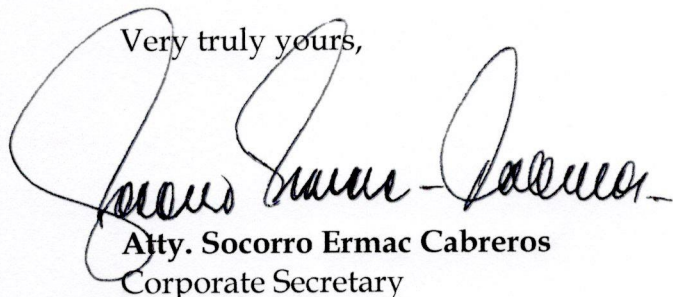 Very truly yours,
Socorro Ermac-Cabreros-
Atty. Socorro Ermac Cabreros
Corporate Secretary